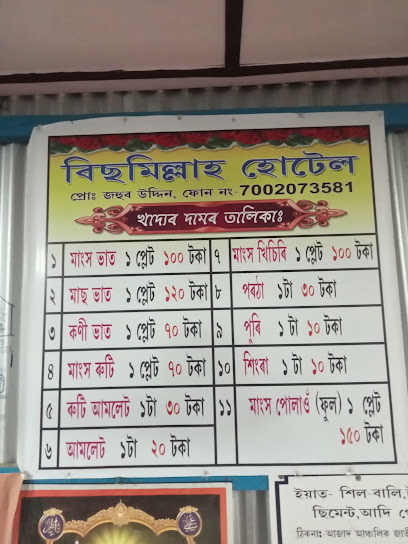 বিছমিল্লাহ হোটেল
প্ৰোঃ জহুৰ উদ্দিন, ফোন নং- 7002073581
খাদ্যৰ দামৰ তালিকাঃ
১ মাংস ভাত ১ প্লেট ১০০ টকা
২ মাছ ভাত ১ প্লেট ১২০ টকা
৩ কণী ভাত ১ প্লেট ৭০ টকা
৪ মাংস ৰুটি ১ প্লেট ৭০ টকা
৫ ৰুটি আমলেট ১টা ৩০ টকা
৬ আমলেট ১টা ২০ টকা
৭ মাংস খিচিৰি ১ প্লেট ১০০ টকা
৮ পৰঠা ১টা ৩০ টকা
৯ পূৰি ১ টা ১০ টকা
১০ শিংৰা ১টা ১০ টকা
১১ মাংস পোলাওঁ (ফুল) ১ প্লেট
১৫০ টকা
ইয়াত- শিল-বালি,
ছিমেন্ট,আদি
ঠিকনাঃ আজাদ আঞ্চলিক